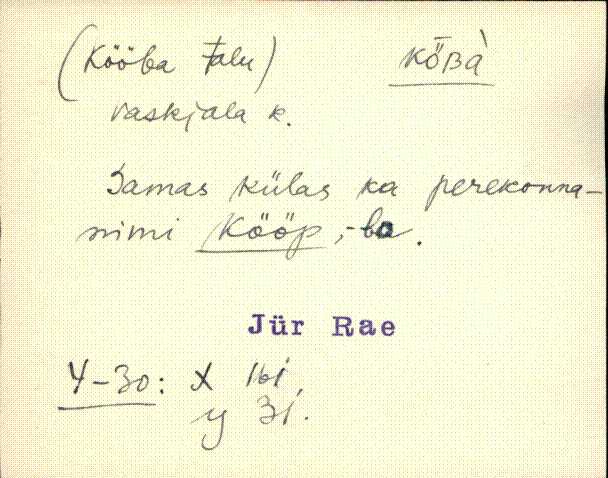 (Kööba talu) KöBà
Vaskjala k.
Samas külas ka perekonna-
nimi Kööp, -ba.
Jür Rae
4-30: X 161,
y 31.